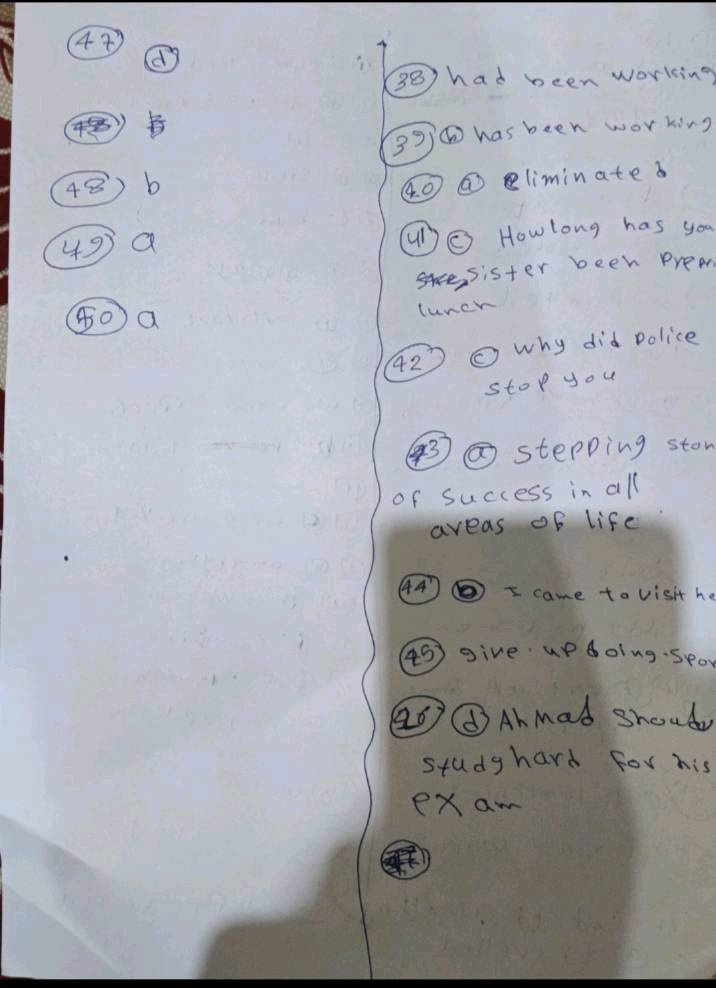 47 d
48 b
49 a
50 a
38 had been working
39 b has been working
40 a eliminated
41 c How long has you
sister been
lunch
42 c why did police
stop you
43 a stepping ston
of success in all
areas of life
44 b I came to visit he
45 give up doing spor
46 d Ahmad should
study hard for his
exam